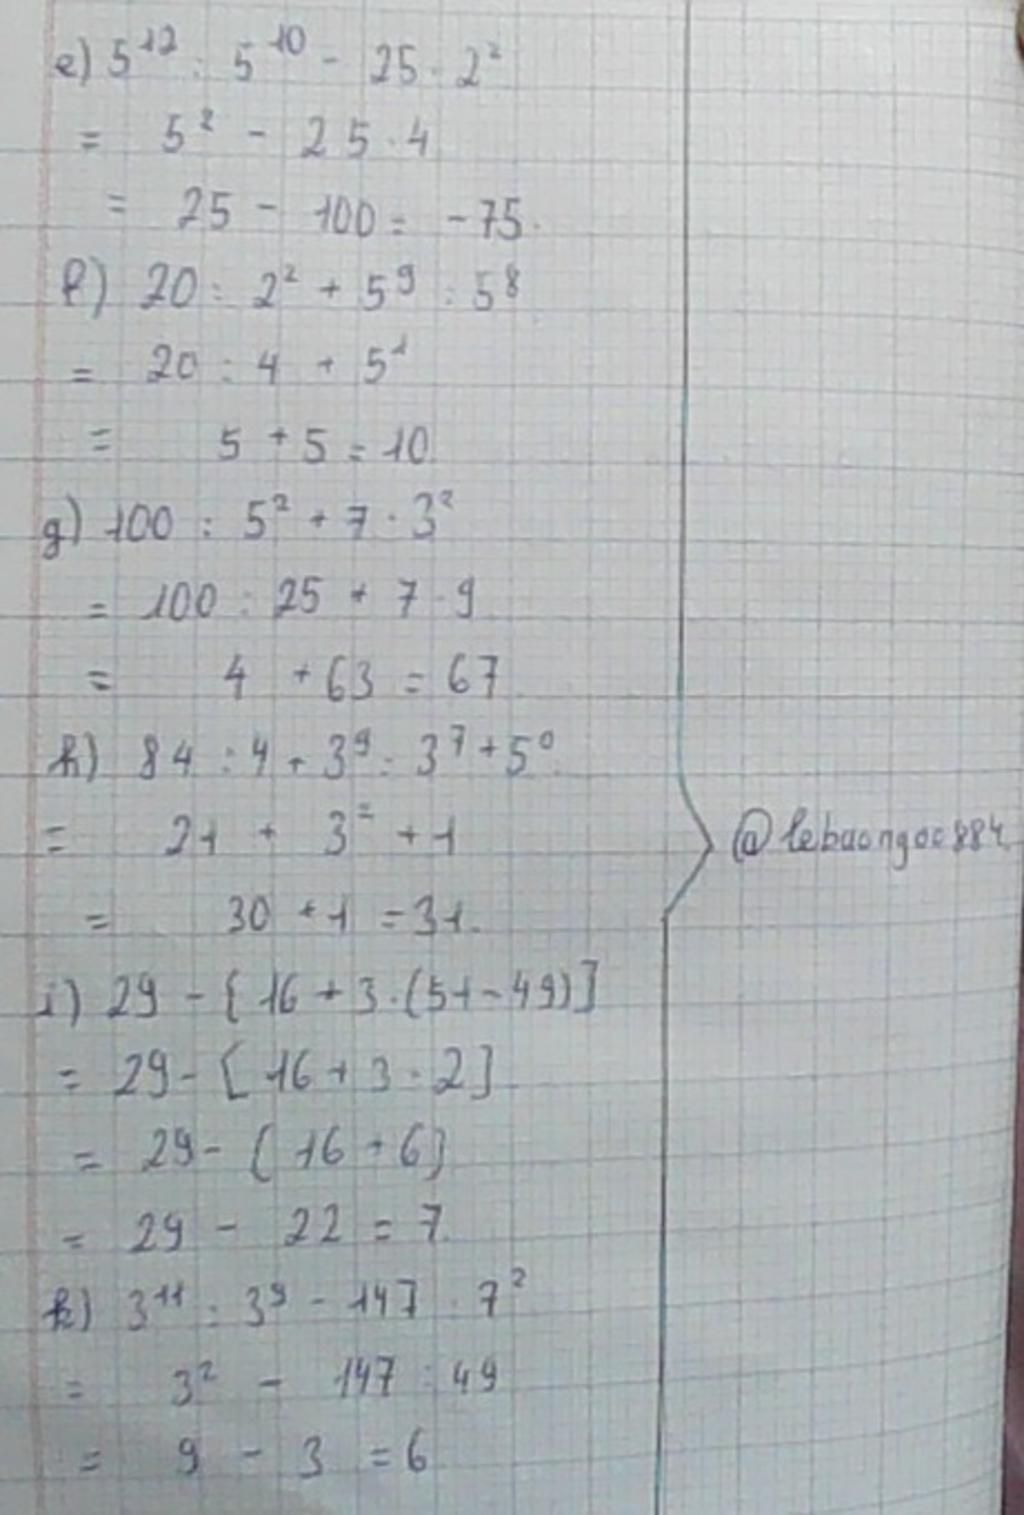 e) 5¹² : 5¹⁰ - 25 · 2²
= 5² - 25 · 4
= 25 - 100 = -75.
f) 20 : 2² + 5⁹ : 5⁸
= 20 : 4 + 5¹
= 5 + 5 = 10
g) 100 : 5² + 7 · 3²
= 100 : 25 + 7 · 9
= 4 + 63 = 67
h) 84 : 4 + 3⁹ : 3⁷ + 5⁰
= 21 + 3² + 1
= 30 + 1 = 31.
@lebaongoc884
i) 29 - [16 + 3 · (51 - 49)]
= 29 - [16 + 3 · 2]
= 29 - [16 + 6]
= 29 - 22 = 7
k) 3¹¹ : 3⁹ - 147 : 7²
= 3² - 147 : 49
= 9 - 3 = 6